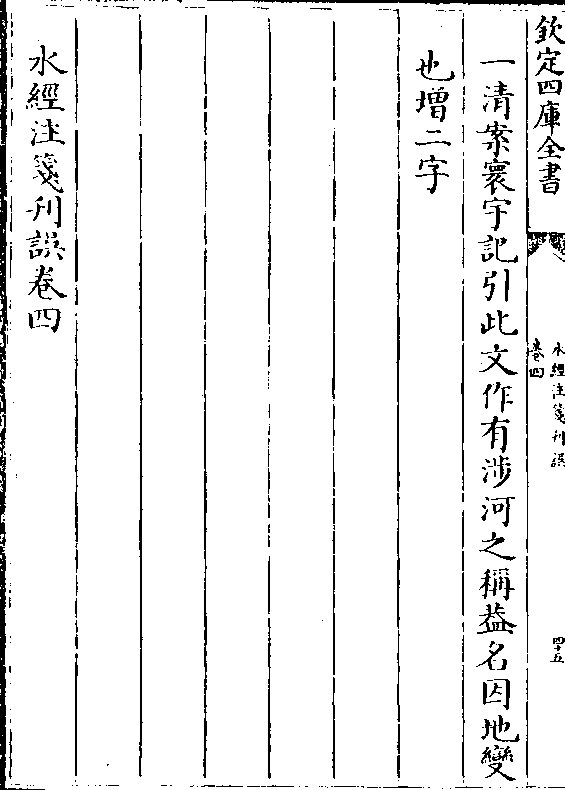 欽定四庫全書
水經注箋刊誤
卷四
四十五
一清案寰宇記引此文作有涉河之稱葢名因地變
也增二字
水經注箋刊誤卷四